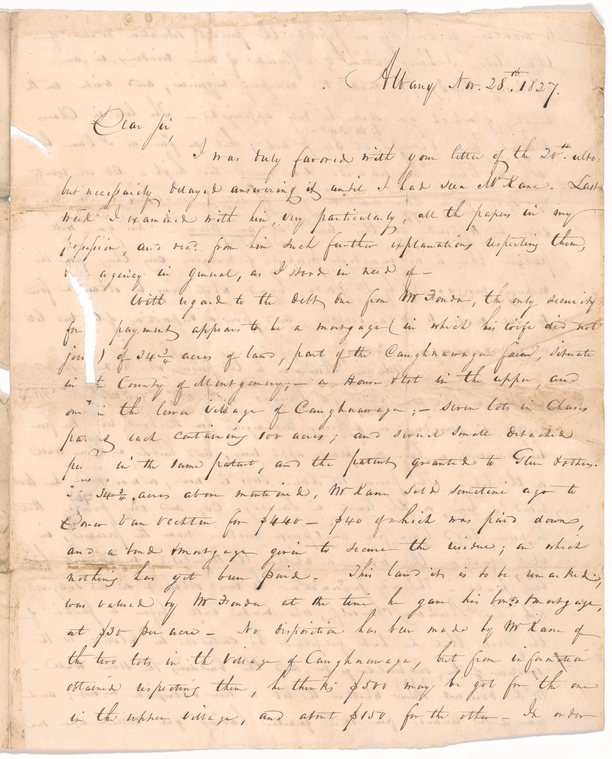 Albany Nov. 28th. 1827.
Dear Sir,
I was duly favored with your letter of the 20th. ulto.
but necessarily delayed answering it until I had seen Mr Kane. Last
week I examined with him, very particularly, all the papers in my
possession, and recd. from him such further explanations respecting them,
agency in general, as I stood in need of -
With regard to the debt due from Mr Fonda, the only security
for payment appears to be a mortgage (in which his wife did not
join) of 34 3/4 acres of land, part of the Caughnawaga farm, situate
in County of Montgomery; - a House & lot in the upper, and
one in the lower Village of Caughnawaga; - seven lots in Chases
each containing 100 acres; and several small detached
in the same patent, and the patent granted to Glen & others.
34 3/4 acres above mentioned, Mr Kane sold sometime ago to
Van Vechten for $440 - $40 of which was paid down,
and a bond & mortgage given to secure the residue; on which
nothing has yet been paid. This land it is to be remarked,
was valued by Mr Fonda at the time he gave his bond & mortgage,
at $30 per acre - No disposition has been made by Mr Kane of
the two lots in the Village of Caughnawaga, but from information
obtained respecting them, he thinks $500 may be got for the one
in the upper village, and about $150 for the other - In order